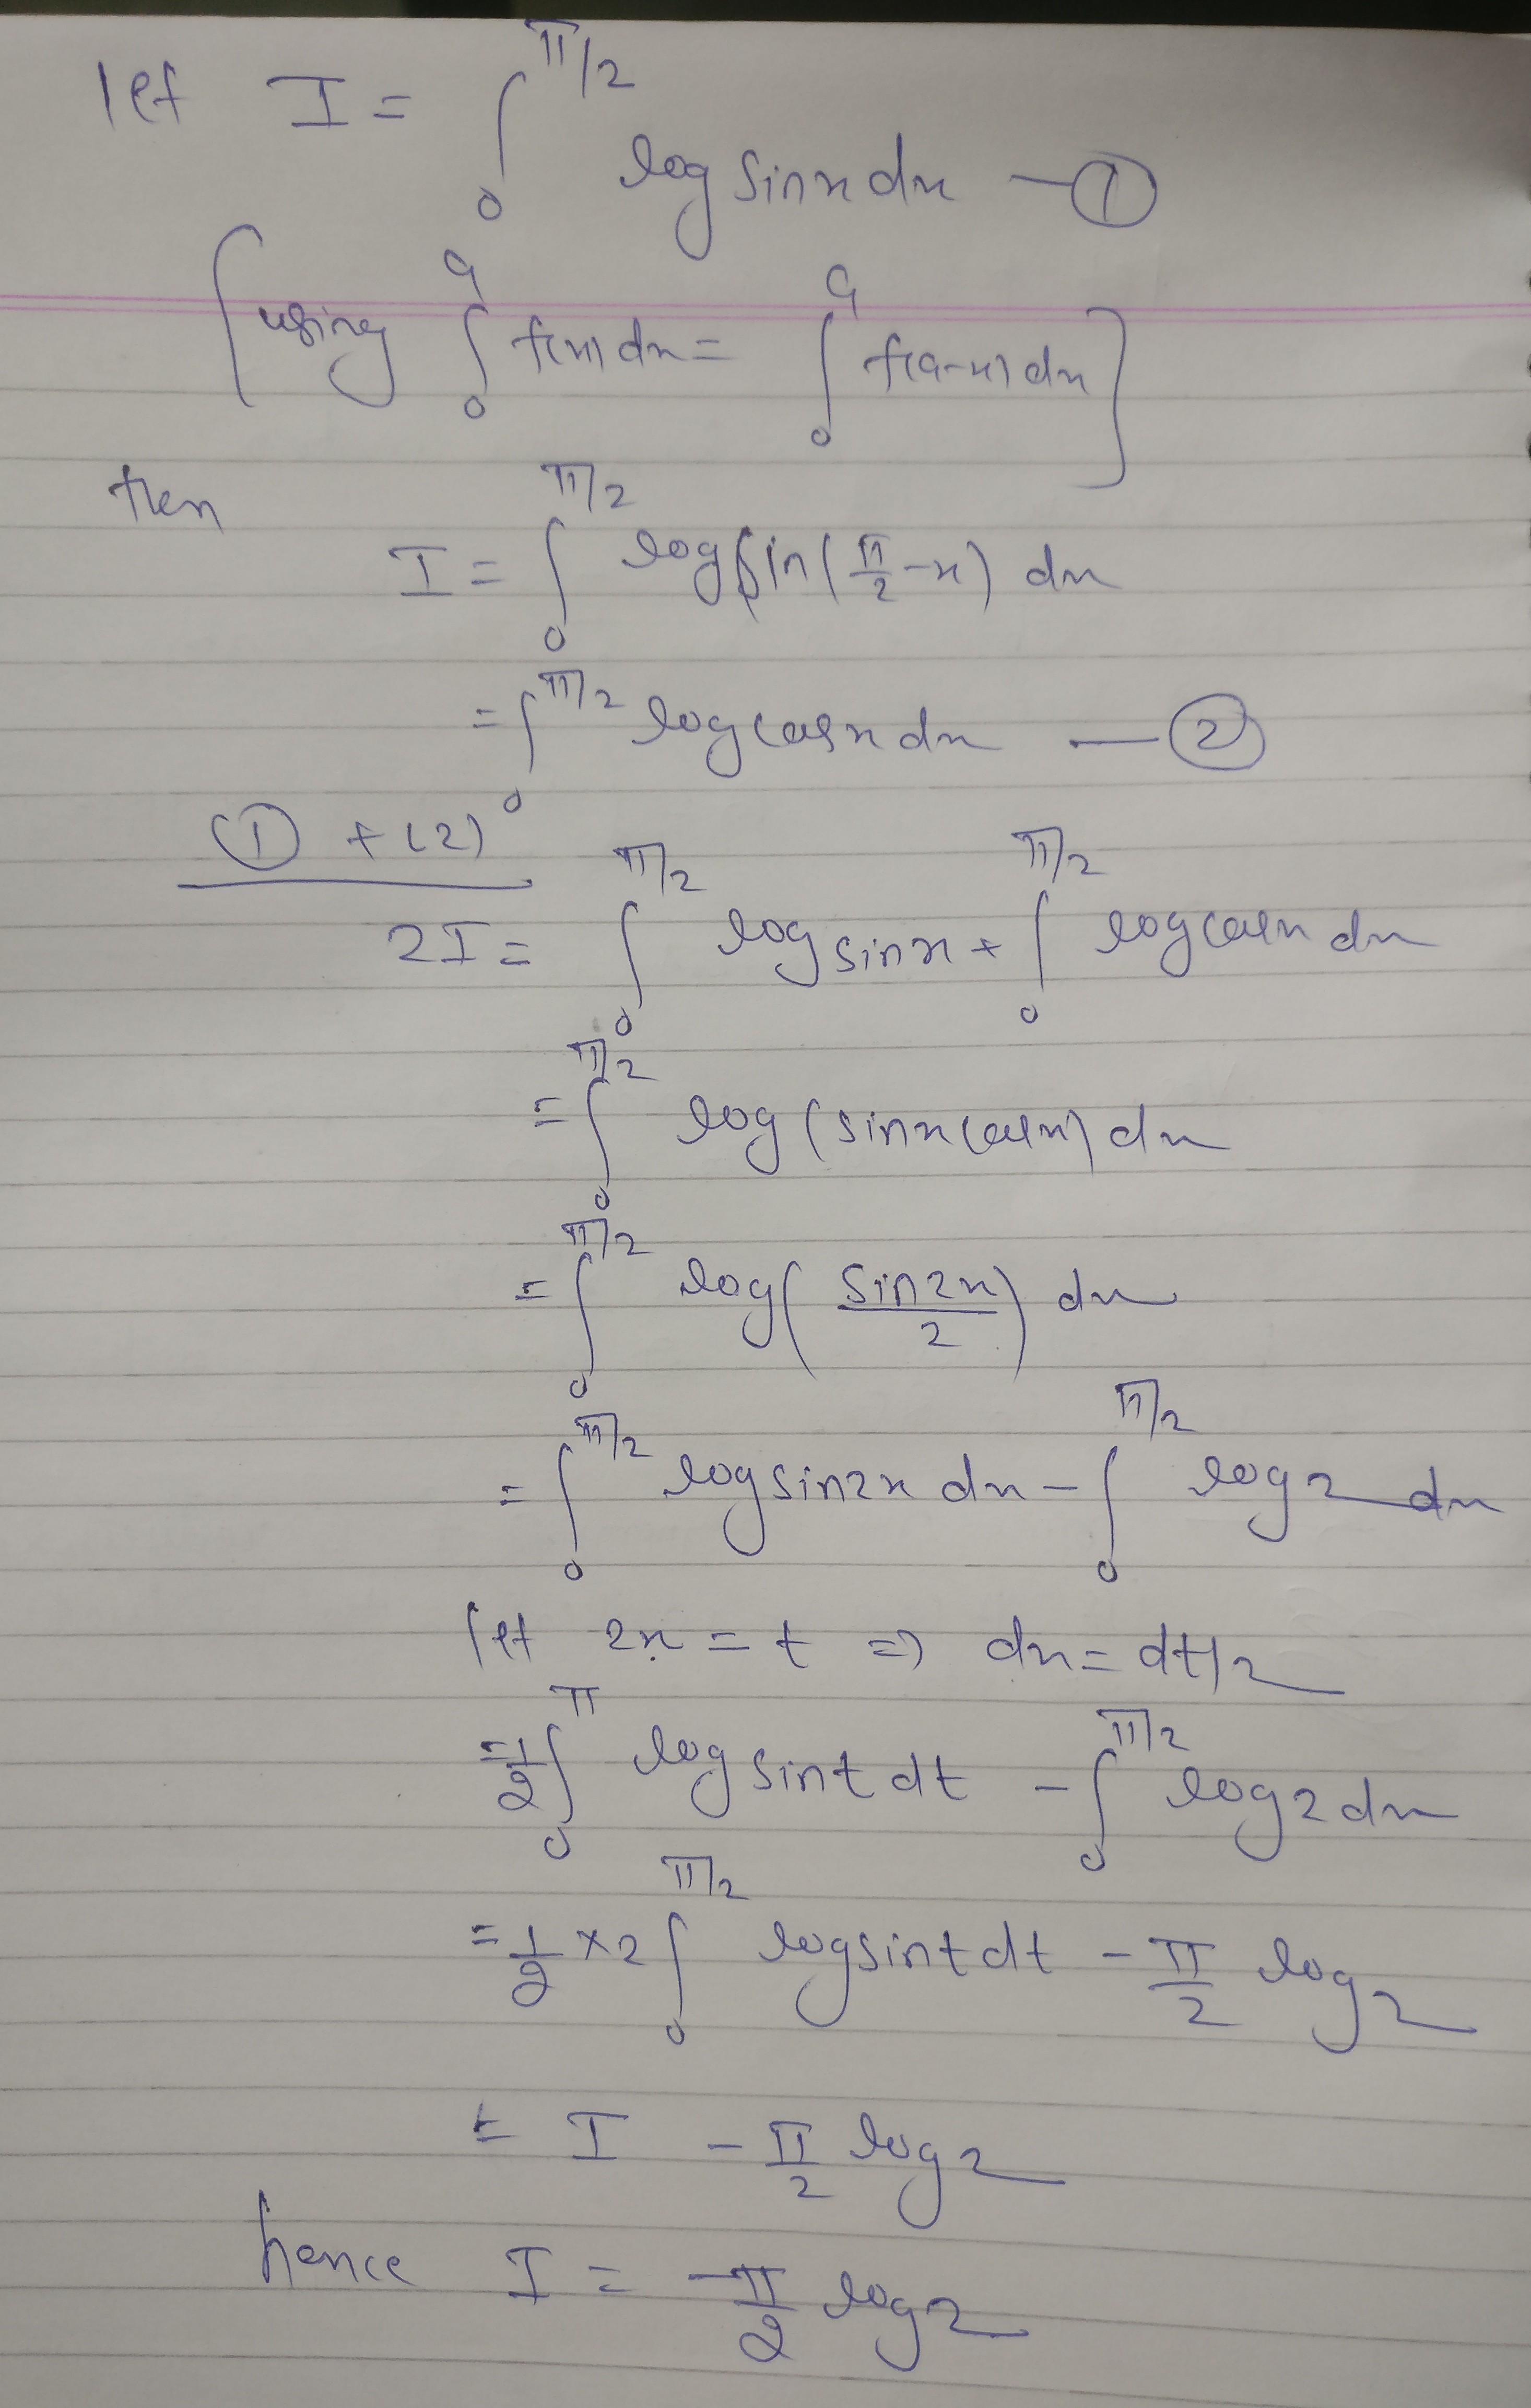 let I = ∫₀^{π/2} log sinx dx — ①
[using ∫₀^a f(x) dx = ∫₀^a f(a-x) dx]
then
I = ∫₀^{π/2} log sin(π/2 - x) dx
= ∫₀^{π/2} log cosx dx — ②
① + (2)
2I = ∫₀^{π/2} log sinx + ∫₀^{π/2} log cosx dx
= ∫₀^{π/2} log (sinx cosx) dx
= ∫₀^{π/2} log(sin2x/2) dx
= ∫₀^{π/2} log sin2x dx - ∫₀^{π/2} log2 dx
let 2x = t ⇒ dx = dt/2
= 1/2 ∫₀^π log sint dt - ∫₀^{π/2} log2 dx
= 1/2 × 2 ∫₀^{π/2} log sint dt - π/2 log2
= I - π/2 log2
hence I = -π/2 log2